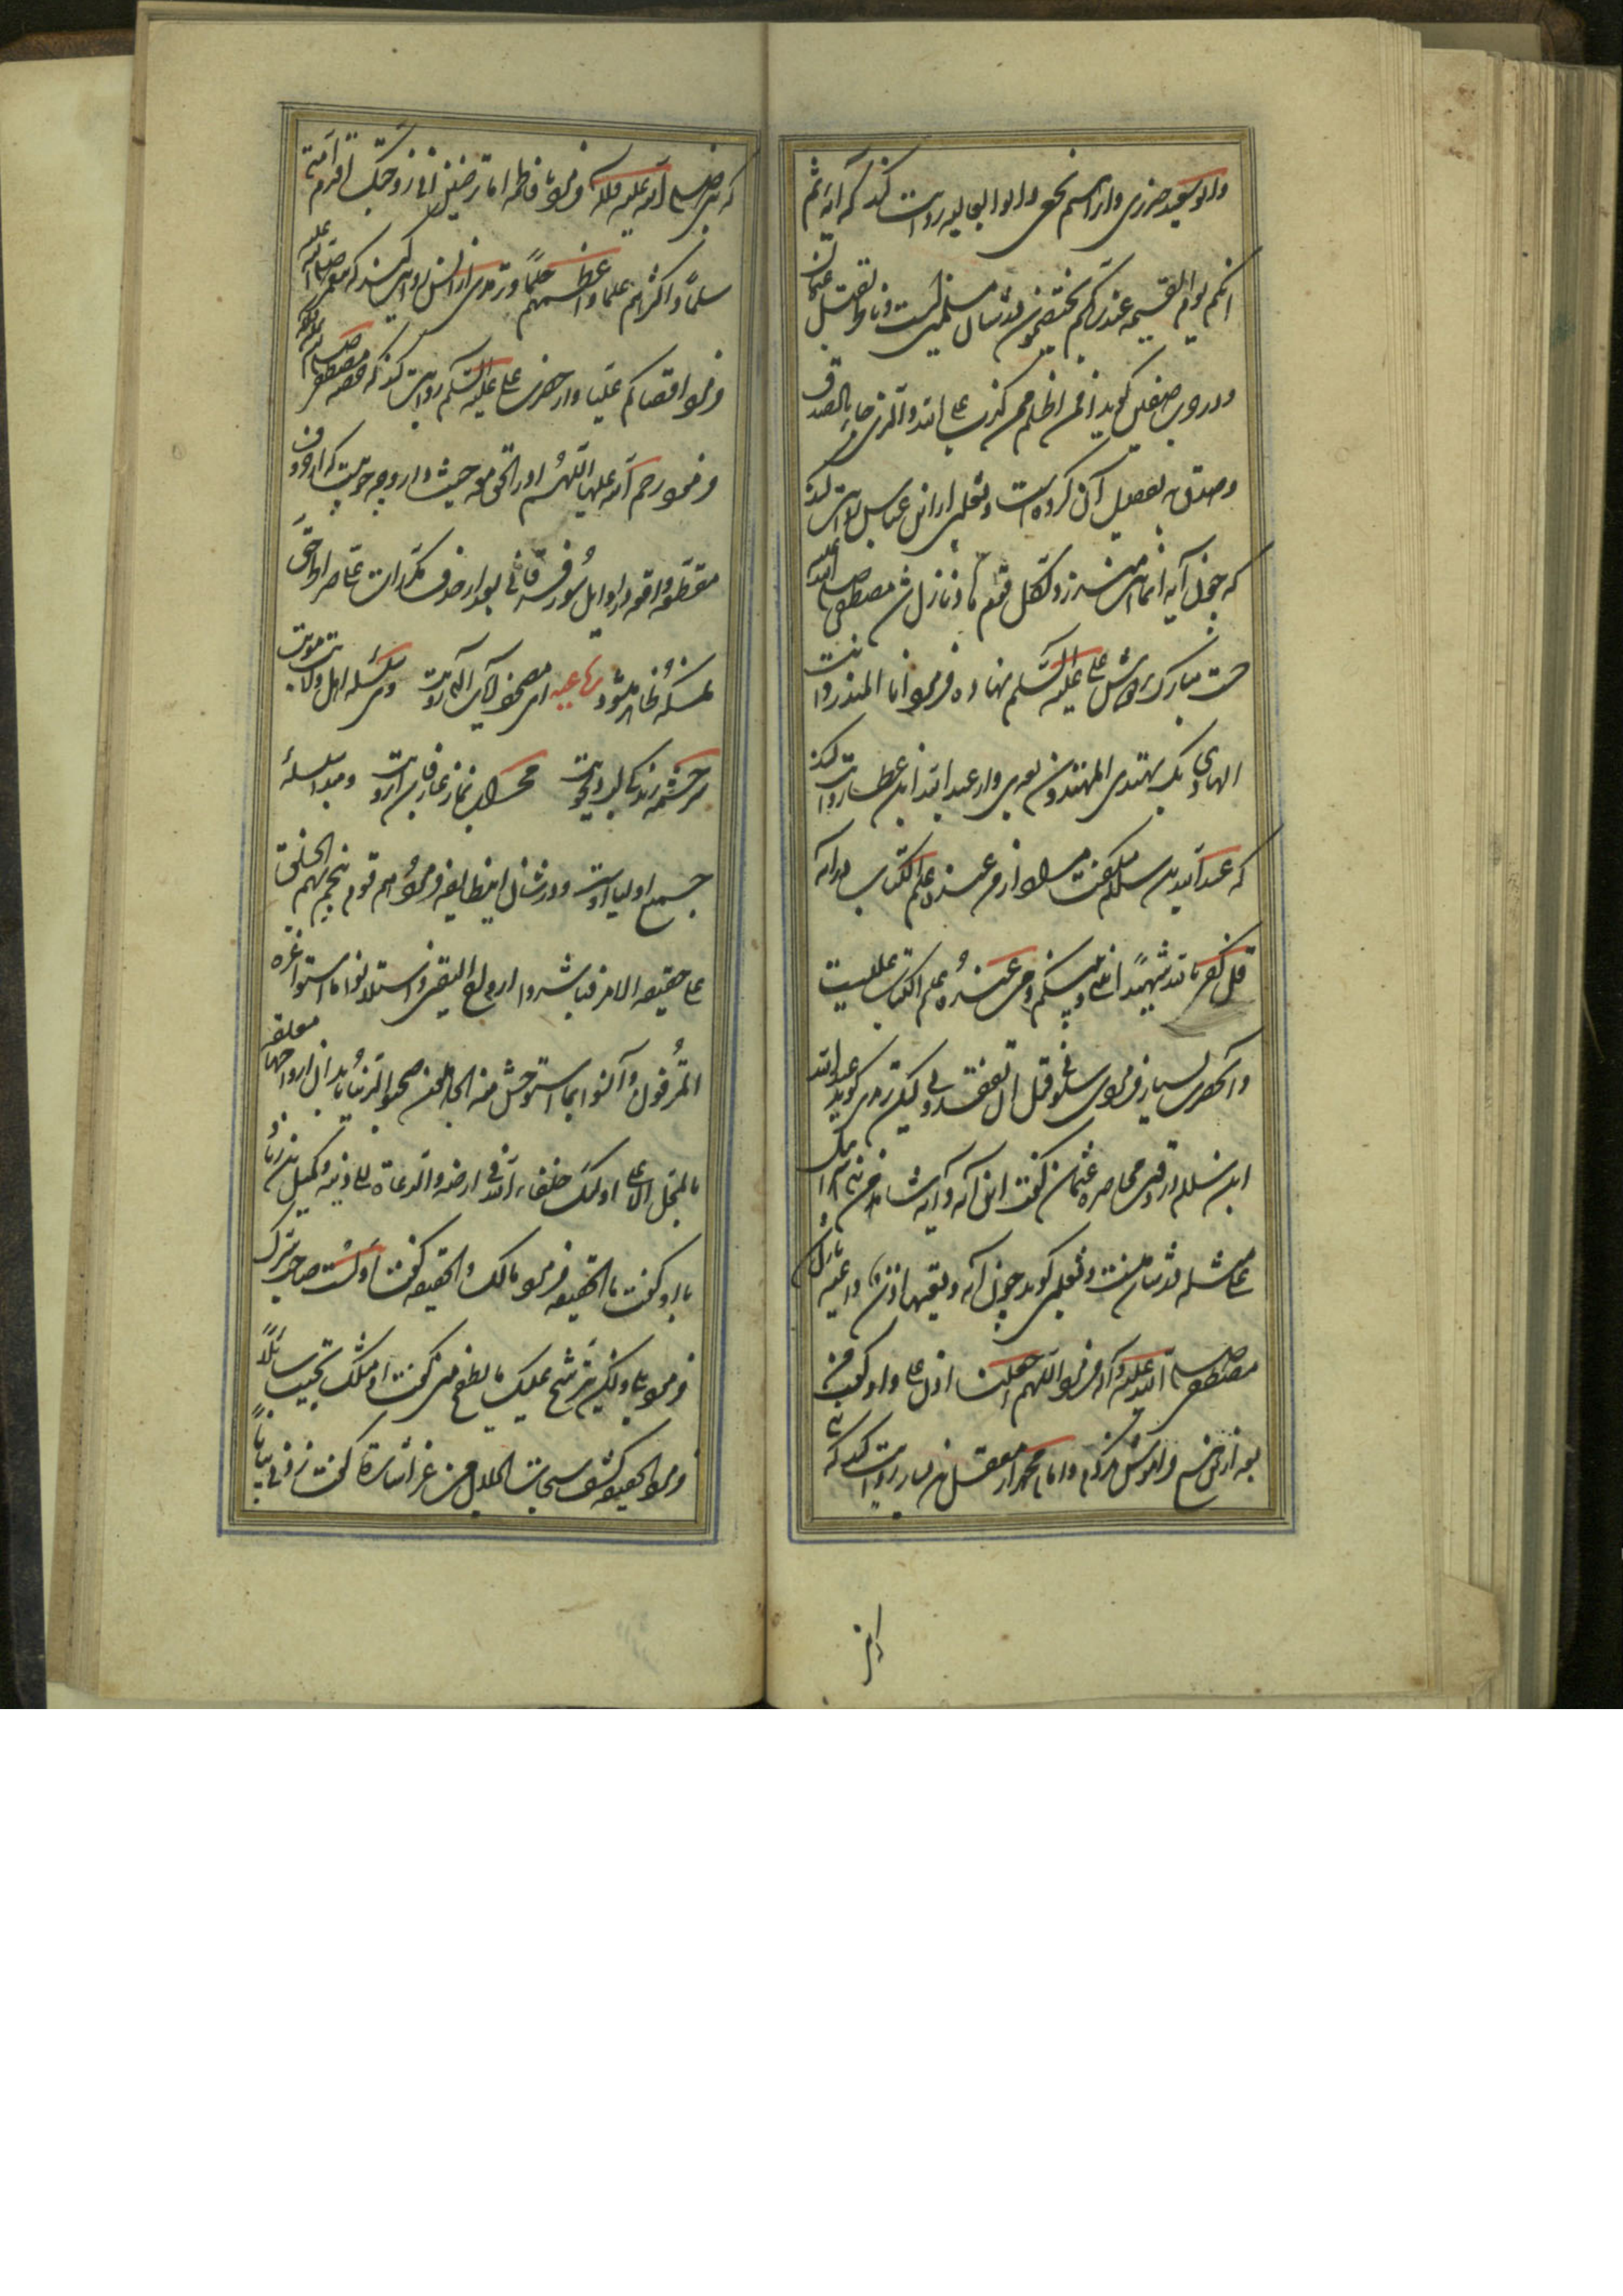 وابو سعید خدری و ابراهیم نخعی و ابو العالیه روایت کنند که آیه ثم
انکم یوم القیمه عند ربکم تختصمون در شان مسلمین است و بنا بر قتل عثمان
و در حرب صفین گوید فمن اظلم ممن کذب علی الله والذی جاء بالصدق
وصدق به تفصیل آن کرده است و ثعلبی از ابن عباس روایت کند
که چون آیه انما انت منذر ولکل قوم هاد نازل شد مصطفی صلی الله علیه
دست مبارک بر دوش علی علیه السلم نهاده فرمود انا المنذر وانت
الهادی بک یهتدی المهتدون بعدی و از عبد الله ابن عطا روایت کند
که عبد الله بن سلام گفت مراد از من عنده علم الکتاب در آیه
قل کفی بالله شهیدا بینی وبینکم ومن عنده علم الکتاب علیست
و آنحضرت بسیار فرمودی سلونی قبل ان تفقدونی لیکن ترمذی گوید عبد الله
ابن سلام در وقت محاصره عثمان گفت این آیه و آیه شاهد من بنی اسرائیل
علی مثله در شان منست و ثعلبی گوید چون آیه وتعیها اذن واعیه نازل شد
مصطفی صلی الله علیه وآله فرمود اللهم اجعلها اذن علی و او گفت من
بعد از آن هیچ فراموش نکردم و امام احمد از معقل بن یسار روایت کند که
که نبی صلی الله علیه وآله فرمود یا فاطمه اما ترضین انی زوجتک اقدم امتی
سلما واکثرهم علما واعظمهم حلما و ترمذی از انس روایت کند که پیغمبر صلی الله علیه
فرمود اقضاکم علی و از حضرت علی علیه السلم روایت کند که مصطفی صلی الله علیه وآله
فرمود رحم الله علیا اللهم ادر الحق معه حیث دار و وجه حرمت که از حروف
مقطعه واقعه در اوایل سور فرقانی بعد از حذف مکررات علی صراط حق
نمسکه ظاهر میشود رباعیه ای مصحف آیات الهی رویت وی سلسله اهل ولایت مویت
سرچشمه زندگی لب دلجویت محراب نماز عارفان ابرویت و مبدا سلسله
جمیع اولیا اوست و در شان این طایفه فرموده هم قوم هجم بهم العلم
علی حقیقه الامر فباشروا ارواح الیقین واستلانوا ما استوعره
المترفون وآنسوا بما استوحش منه الجاهلون صحبوا الدنیا بابدان ارواحها معلقه
بالمحل الاعلی اولئک خلفاء الله فی ارضه والدعاة الی دینه وکمیل بن زیاد
با او گفت ما الحقیقه فرمود مالک والحقیقه گفت اولست صاحب سرک
فرمود بلی ولکن یترشح علیک ما یطفح منی گفت او مثلک یخیب سائلا
فرمود الحقیقه کشف سبحات الجلال من غیر اشارة گفت زدنی بیانا